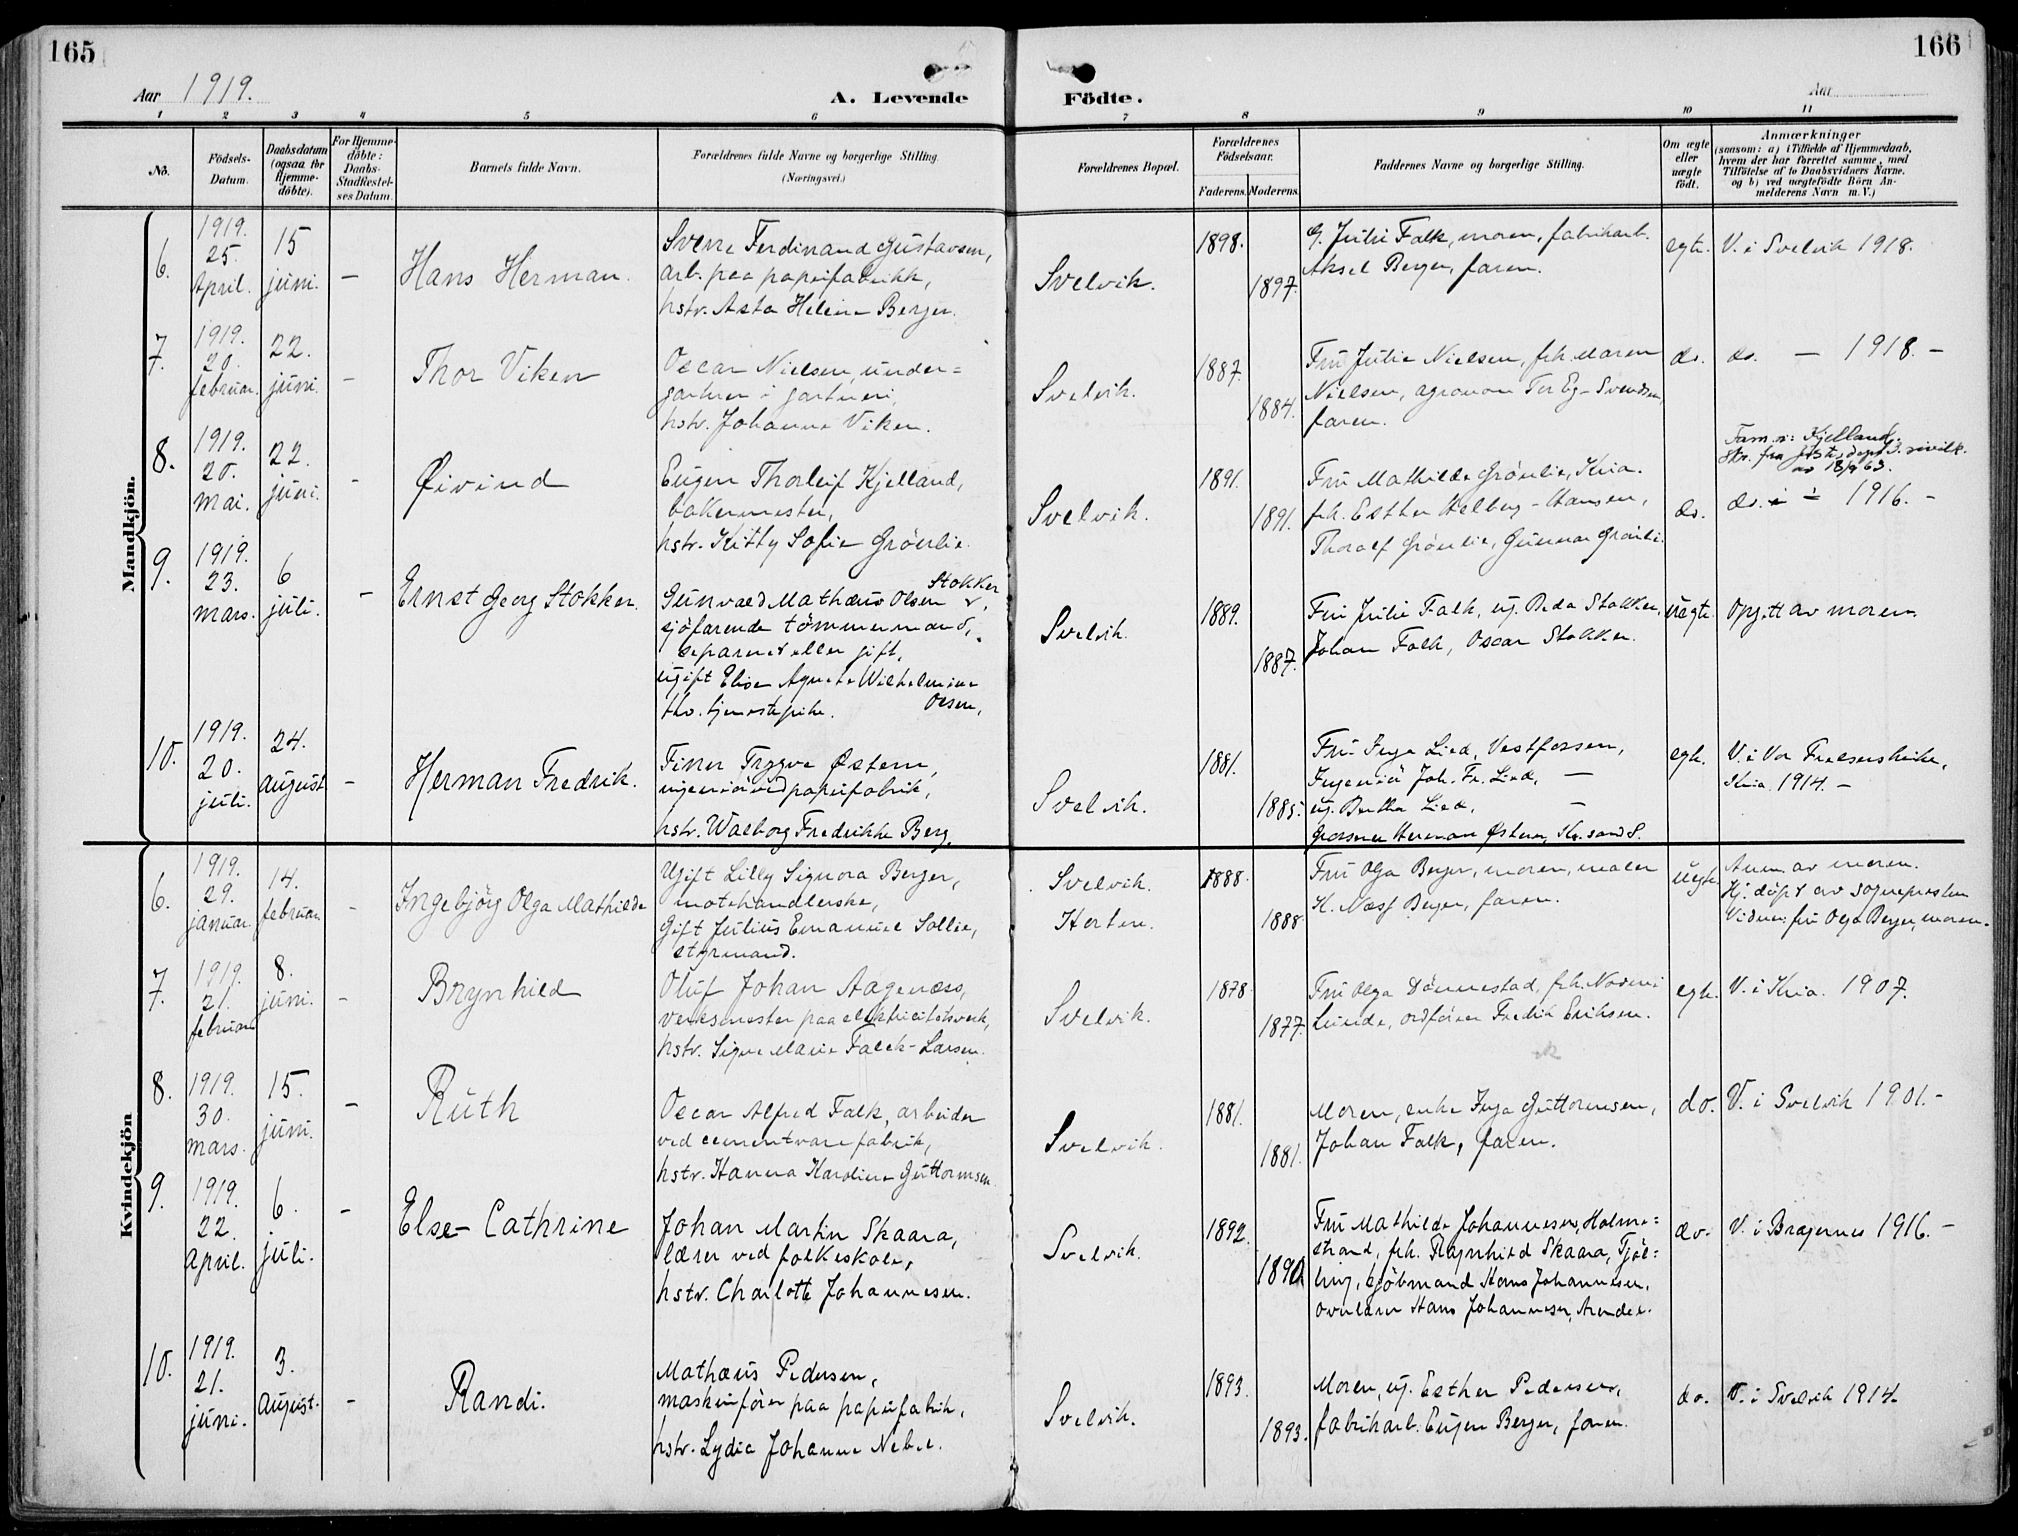 165
166
Aar 1919.
A. Levende
Födte.
Aar
1 2 3 4 5 6 7 8 9 10 11
No.
Födsels-
Datum.
Daabsdatum
(ogsaa for
Hjemme-
döbte).
For Hjemme-
döbte:
Daabs-
Stadfæstel-
ses Datum.
Barnets fulde Navn.
Forældrenes fulde Navne og borgerlige Stilling.
(Næringsvei.)
Forældrenes Bopæl.
Forældrenes
Födselsaar.
Faderens. Moderens.
Faddernes Navne og borgerlige Stilling.
Om ægte
eller
uægte
födt.
Anmærkninger
(saasom: a) i Tilfælde af Hjemmedaab,
hvem der har forrettet samme, med
Tilföielse af to Daabsvidners Navne,
og b) ved uægtefödte Börn An-
melderens Navn m. V.)
Mandkjön.
6.
1919.
25.
April.
15
juni.
–
Hans Herman.
Sverre Ferdinand Gustavsen,
arb. paa papirfabrikk,
hstr. Asta Helene Berger.
Svelvik.
1898.
1897.
G. Julie Falk, moren, fabrikarb.
Aksel Berger, faren.
egte.
V. i Svelvik 1918.
7.
1919.
20.
februar.
22.
juni.
–
Thor Viken
Oscar Nielsen, under=
gartner i gartneri,
hstr. Johanne Viken.
Svelvik.
1887.
1884.
Fru Julie Nielsen, frk. Maren
Nielsen, agronom Tor Eg-Svendsen,
faren.
do.
do. – 1918. –
8.
1919.
20.
mai.
22.
juni.
–
Øivind
Eugen Thorleif Kjelland,
bakermester,
hstr. Kitty Sofie Grönlie.
Svelvik.
1891.
1891.
Fru Mathilde Grönlie, Kria.
frk. Esther Helberg-Hansen,
Thoralf Grönlie, Gunnar Grönlie.
do.
Fam.n: Kjelland.
skr. fra Just.dept. 3. sivilk.
av 18/9 63.
do. i – 1916. –
9.
1919.
23.
mars.
6
juli.
–
Ernst Georg Stokker.
Stokker
Gunvald Mathæus Olsen,
sjöfarende tömmermand,
separert eller gift,
ugift Elise Agnete Wilhelmine
Olsen,
thv. tjenestepike.
Svelvik.
1889.
1887.
Fru Julie Falk, ug. Beda Stokker,
Johan Falk, Oscar Stokker.
uegte.
Opgitt av moren.
10.
1919.
20.
juli.
24.
august
–
Herman Fredrik.
Finn Trygve Østern,
ingeniör ved papirfabrik,
hstr. Walborg Fredrikke Berg.
Svelvik.
1881.
1885.
Fru Inga Lied, Vestfossen,
Ingeniör Joh. Fr. Lied, –
ug. Bertha Lied, –
Grosserer Herman Østern, Kr.sand S.
egte.
V. i Vor Frelserskirke,
Kria. 1914. –
Kvindekjön
6.
1919.
29.
januar.
14.
februar.
–
Ingebjörg Olga Mathilde
Ugift Lilly Signora Berger,
motehandlerske,
Gift Julius Emanuel Sollie,
styrmand.
Svelvik.
Horten.
1888.
1888
Fru Olga Berger, moren, maler
H. Næss Berger, faren.
uegte.
Anm. av moren.
Hj. döpt av sognepresten
Vidner: fru Olga Berger, moren.
7.
1919.
21.
februar
8.
juni.
–
Brynhild
Oluf Johan Aagenæs,
verksmester paa elektricitetsverk,
hstr. Signe Marie Falck-Larsen.
Svelvik.
1878.
1877.
Fru Olga Dönnestad, frk. Naomi
Lunde, ordförer Fredrik Eriksen.
egte.
V. i Kria. 1907.
8.
1919.
30.
mars.
15.
juni.
–
Ruth
Oscar Alfred Falk, arbeider
ved cementvarefabrik,
hstr. Hanna Karoline Guttormsen.
Svelvik.
1881.
1881.
Moren, enke Inga Guttormsen,
Johan Falk, faren.
do.
V. i Svelvik 1901. –
9.
1919.
22.
april.
6.
juli.
–
Else-Cathrine
Johan Martin Skaara,
lærer ved folkeskole,
hstr. Charlotte Johannesen.
Svelvik.
1892.
1890
Fru Mathilde Johannesen, Holme=
strand, frk. Ragnhild Skaara, Tjöl=
ling, kjöbmand Hans Johannesen,
overlærer Hans Johannesen, Arendal.
do.
V. i Bragernes 1916. –
10.
1919.
21.
juni.
3.
august.
–
Randi.
Mathæus Pedersen,
maskinförer paa papirfabrik,
hstr. Lydia Johanne Nebel.
Svelvik.
1893.
1893.
Moren, ug. Esther Pedersen,
fabrikarb. Eugen Berger, faren.
do.
V. i Svelvik 1914.